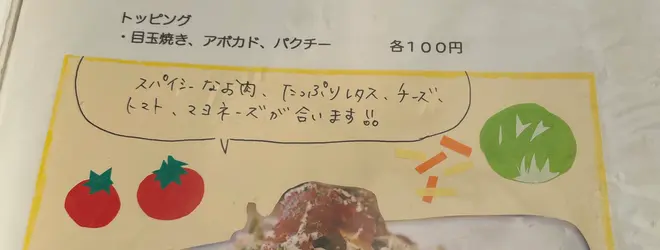 トッピング
・目玉焼き、アボカド、パクチー 各100円
スパイシーなお肉、たっぷりレタス、チーズ、
トマト、マヨネーズが合います!!